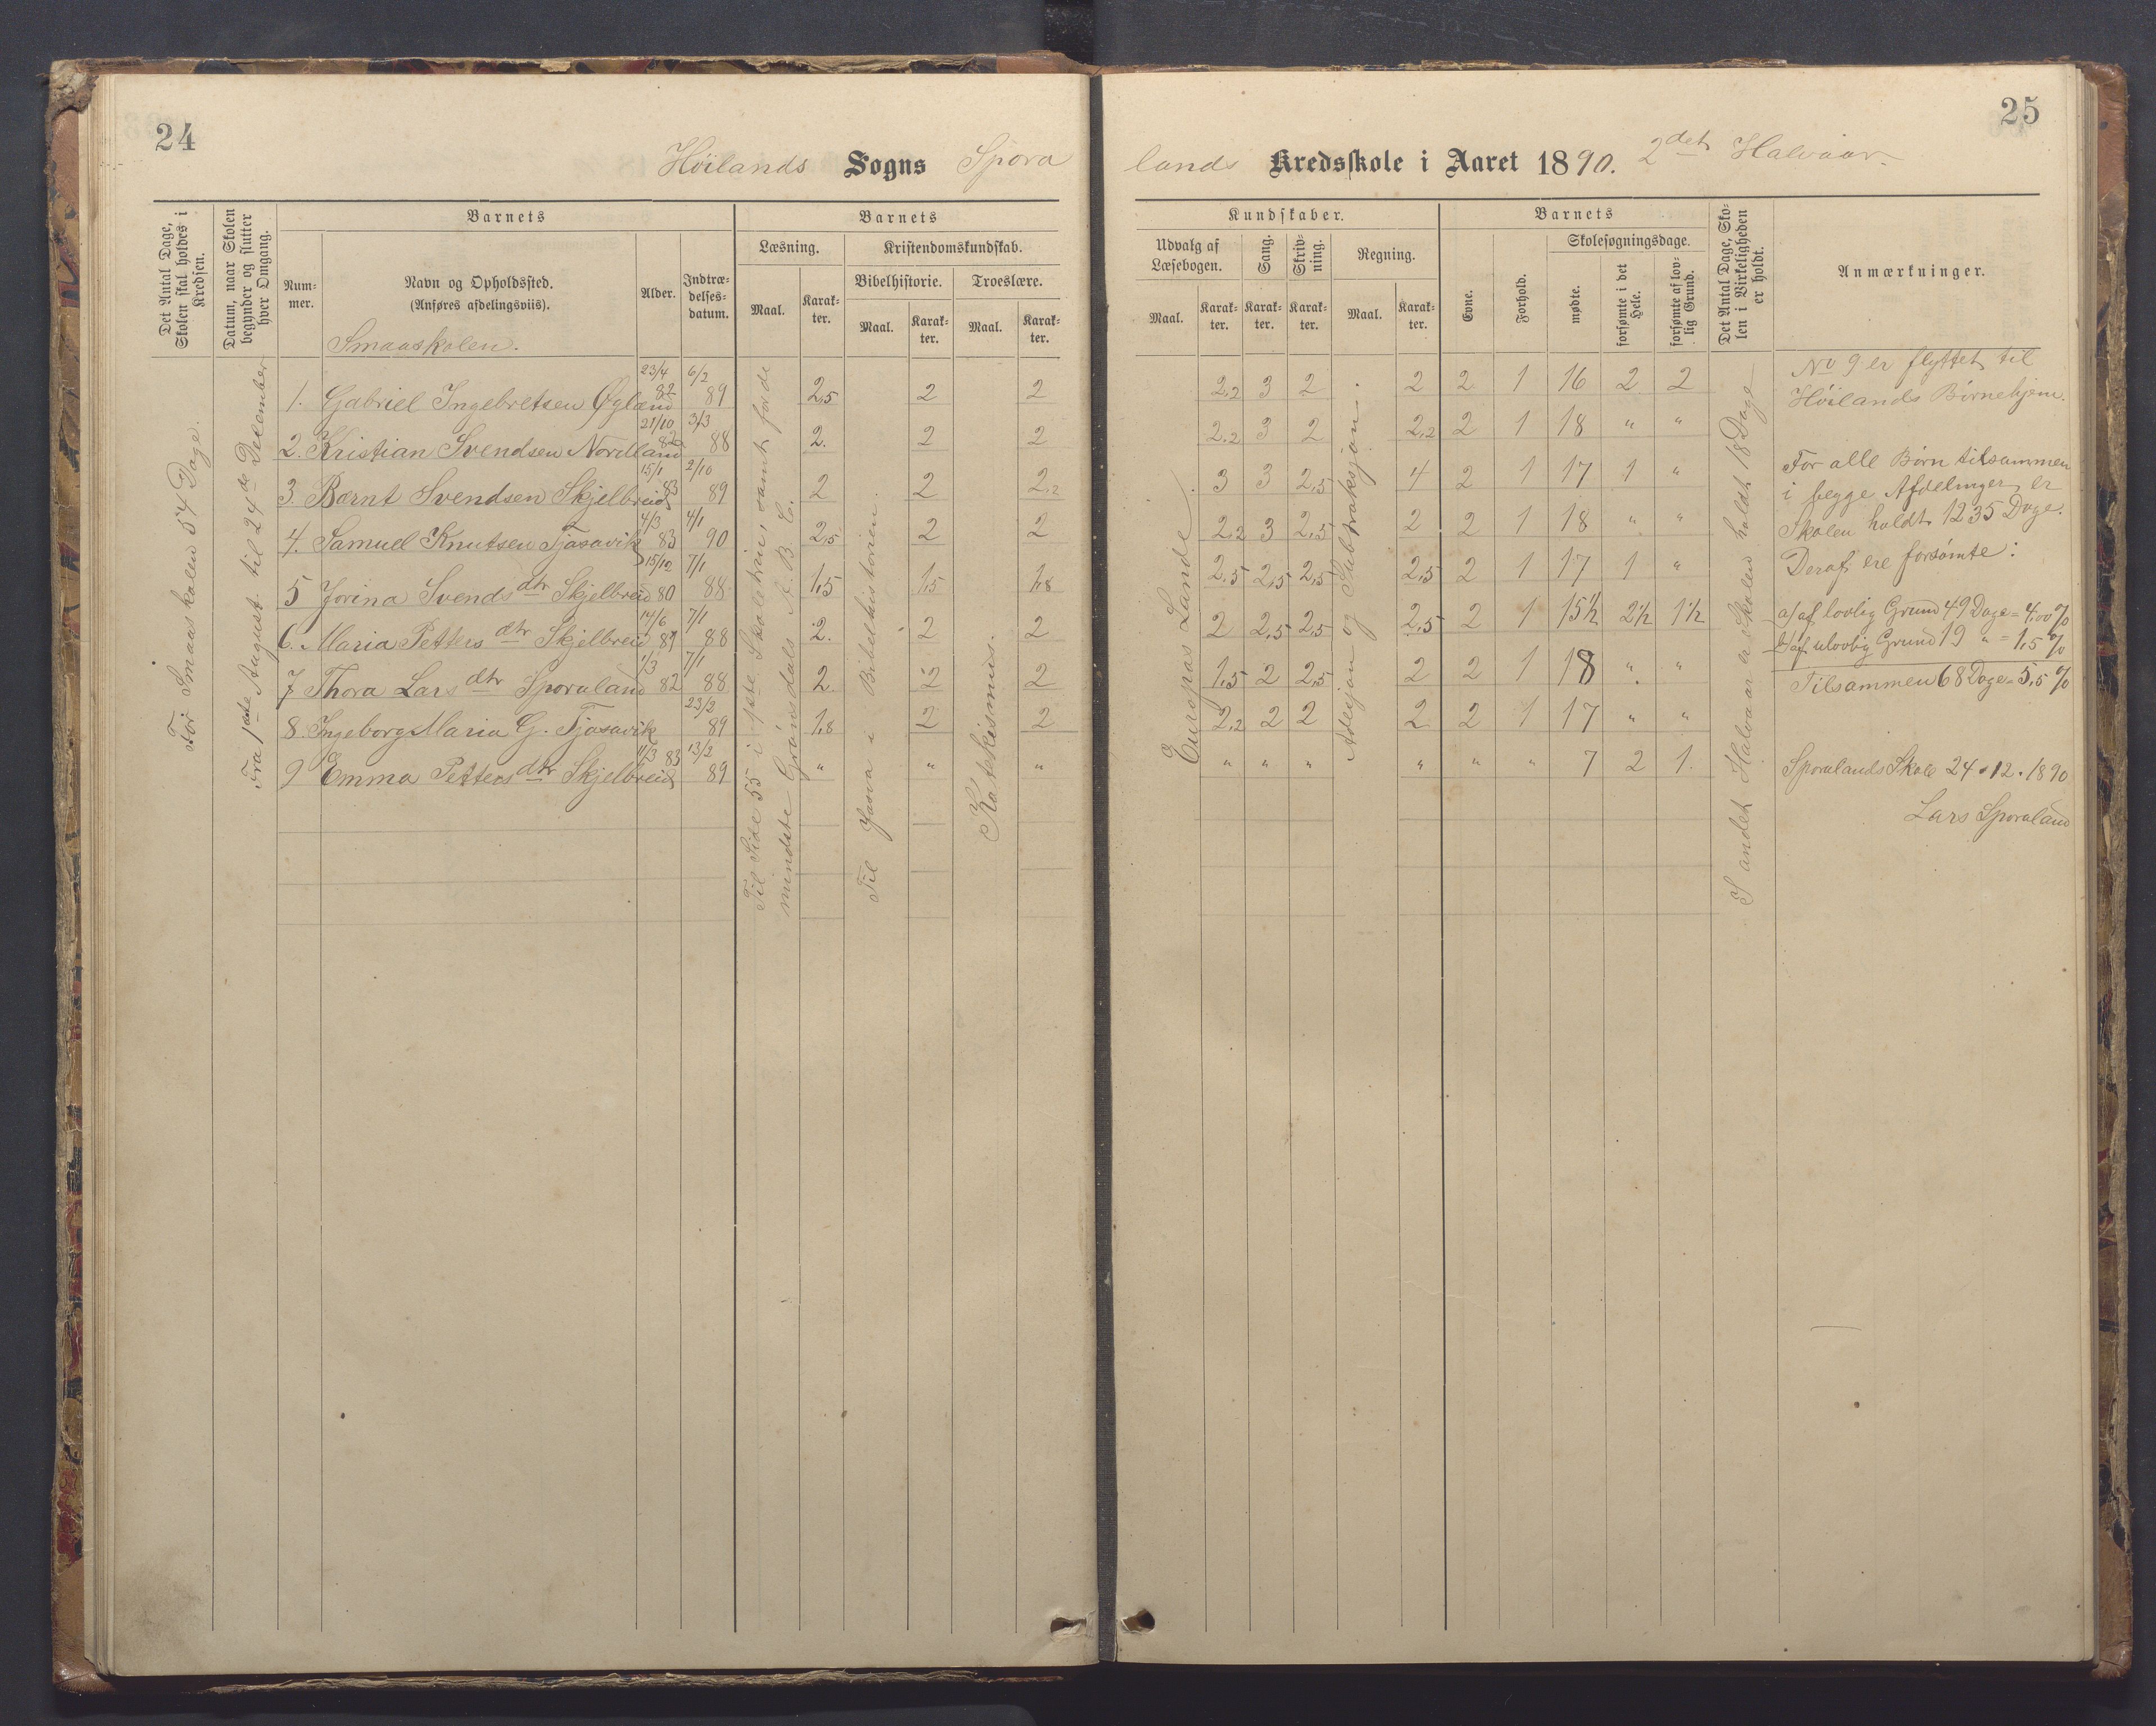 24
Höilands Sogns Spora
Det Antal Dage, Skolen skal holdes i Kredsen.
Datum, naar Skolen begynder og slutter hver Omgang.
Barnets
Barnets
Num-mer.
Navn og Opholdssted.
(Anføres afdelingsviis).
Alder.
Indtræ-delses-datum.
Læsning.
Kristendomskundskab.
Bibelhistorie.
Troeslære.
Maal.
Karak-ter.
Maal.
Karak-ter.
Maal.
Karak-ter.
Smaaskolen.
1. Gabriel Ingebretsen Øgland 23/4 82 6/2 89 2,5 2 2
2. Kristian Svendsen Nordland 21/10 82 3/3 88 2. 2 2
3. Bernt Svendsen Skjelbreid 15/1 83 2/10 89 2 2 2,2
4. Samuel Knutsen Tjåsavik 4/3 83 4/1 90 2,5 2 2
5 Jorina Svends dtr Skjelbreid 15/12 80 7/1 88 1,5 1,5 1,8
6. Maria Petters dtr Skjelbreid 14/6 81 7/1 88 2. 2 2
7 Thora Lars dtr Sporaland 1/3 82 7/1 88 2. 2 2
8. Ingeborg Maria G. Tjåsavik 23/2 89 1,8 2 2
9 Emma Petters dtr Skjelbreid 11/3 83 13/2 89 " " "
For Smaaskolen 54 Dage.
Fra 1ste August til 24de December
Til Side 55 i 1ste Skoletrin, samt for de
mindste Grönsdals A. B. C.
Til Josva i Bibelhistorien.
Katekismus.
25
lands Kredsskole i Aaret 1890. 2det Halvaar.
Kundskaber.
Barnets
Udvalg af Læsebogen.
Sang.
Skriv-ning.
Regning.
Evne.
Forhold.
Skolesøgningsdage.
mødte.
forsømte i det Hele.
forsømte af lov-lig Grund.
Det Antal Dage, Sko-len i Virkeligheden er holdt.
Anmærkninger.
Maal.
Karak-ter.
Karak-ter.
Karak-ter.
Maal.
Karak-ter.
2,2 3 2 2 2 1 16 2 2
2,2 3 2 2,2 2 1 18 " "
3 3 2,5 4 2 1 17 1 "
2,2 3 2,5 2 2 1 18 " "
2,5 2,5 2,5 2,5 2 1 17 1 "
2 2,5 2,5 2,5 2 1 15½ 2½ 1½
1,5 2 2,5 2 2 1 18 " "
2,2 2 2 2 2 1 17 " "
" " " " " " 7 2 1.
Europas Lande.
Adisjon og Subtraksjon.
I andet Halvaar er Skolen holdt 18 Dage
No 9 er flyttet til
Höilands Börnehjem.
For alle Börn tilsammen
i begge Afdelinger er
Skolen holdt 1235 Dage.
Deraf ere forsömte:
a/ af lovlig Grund 49 Dage = 4,00 %
b/ af ulovlig Grund 19 " = 1,5 %
Tilsammen 68 Dage = 5,5 %
Sporalands Skole 24.12.1890
Lars Sporaland